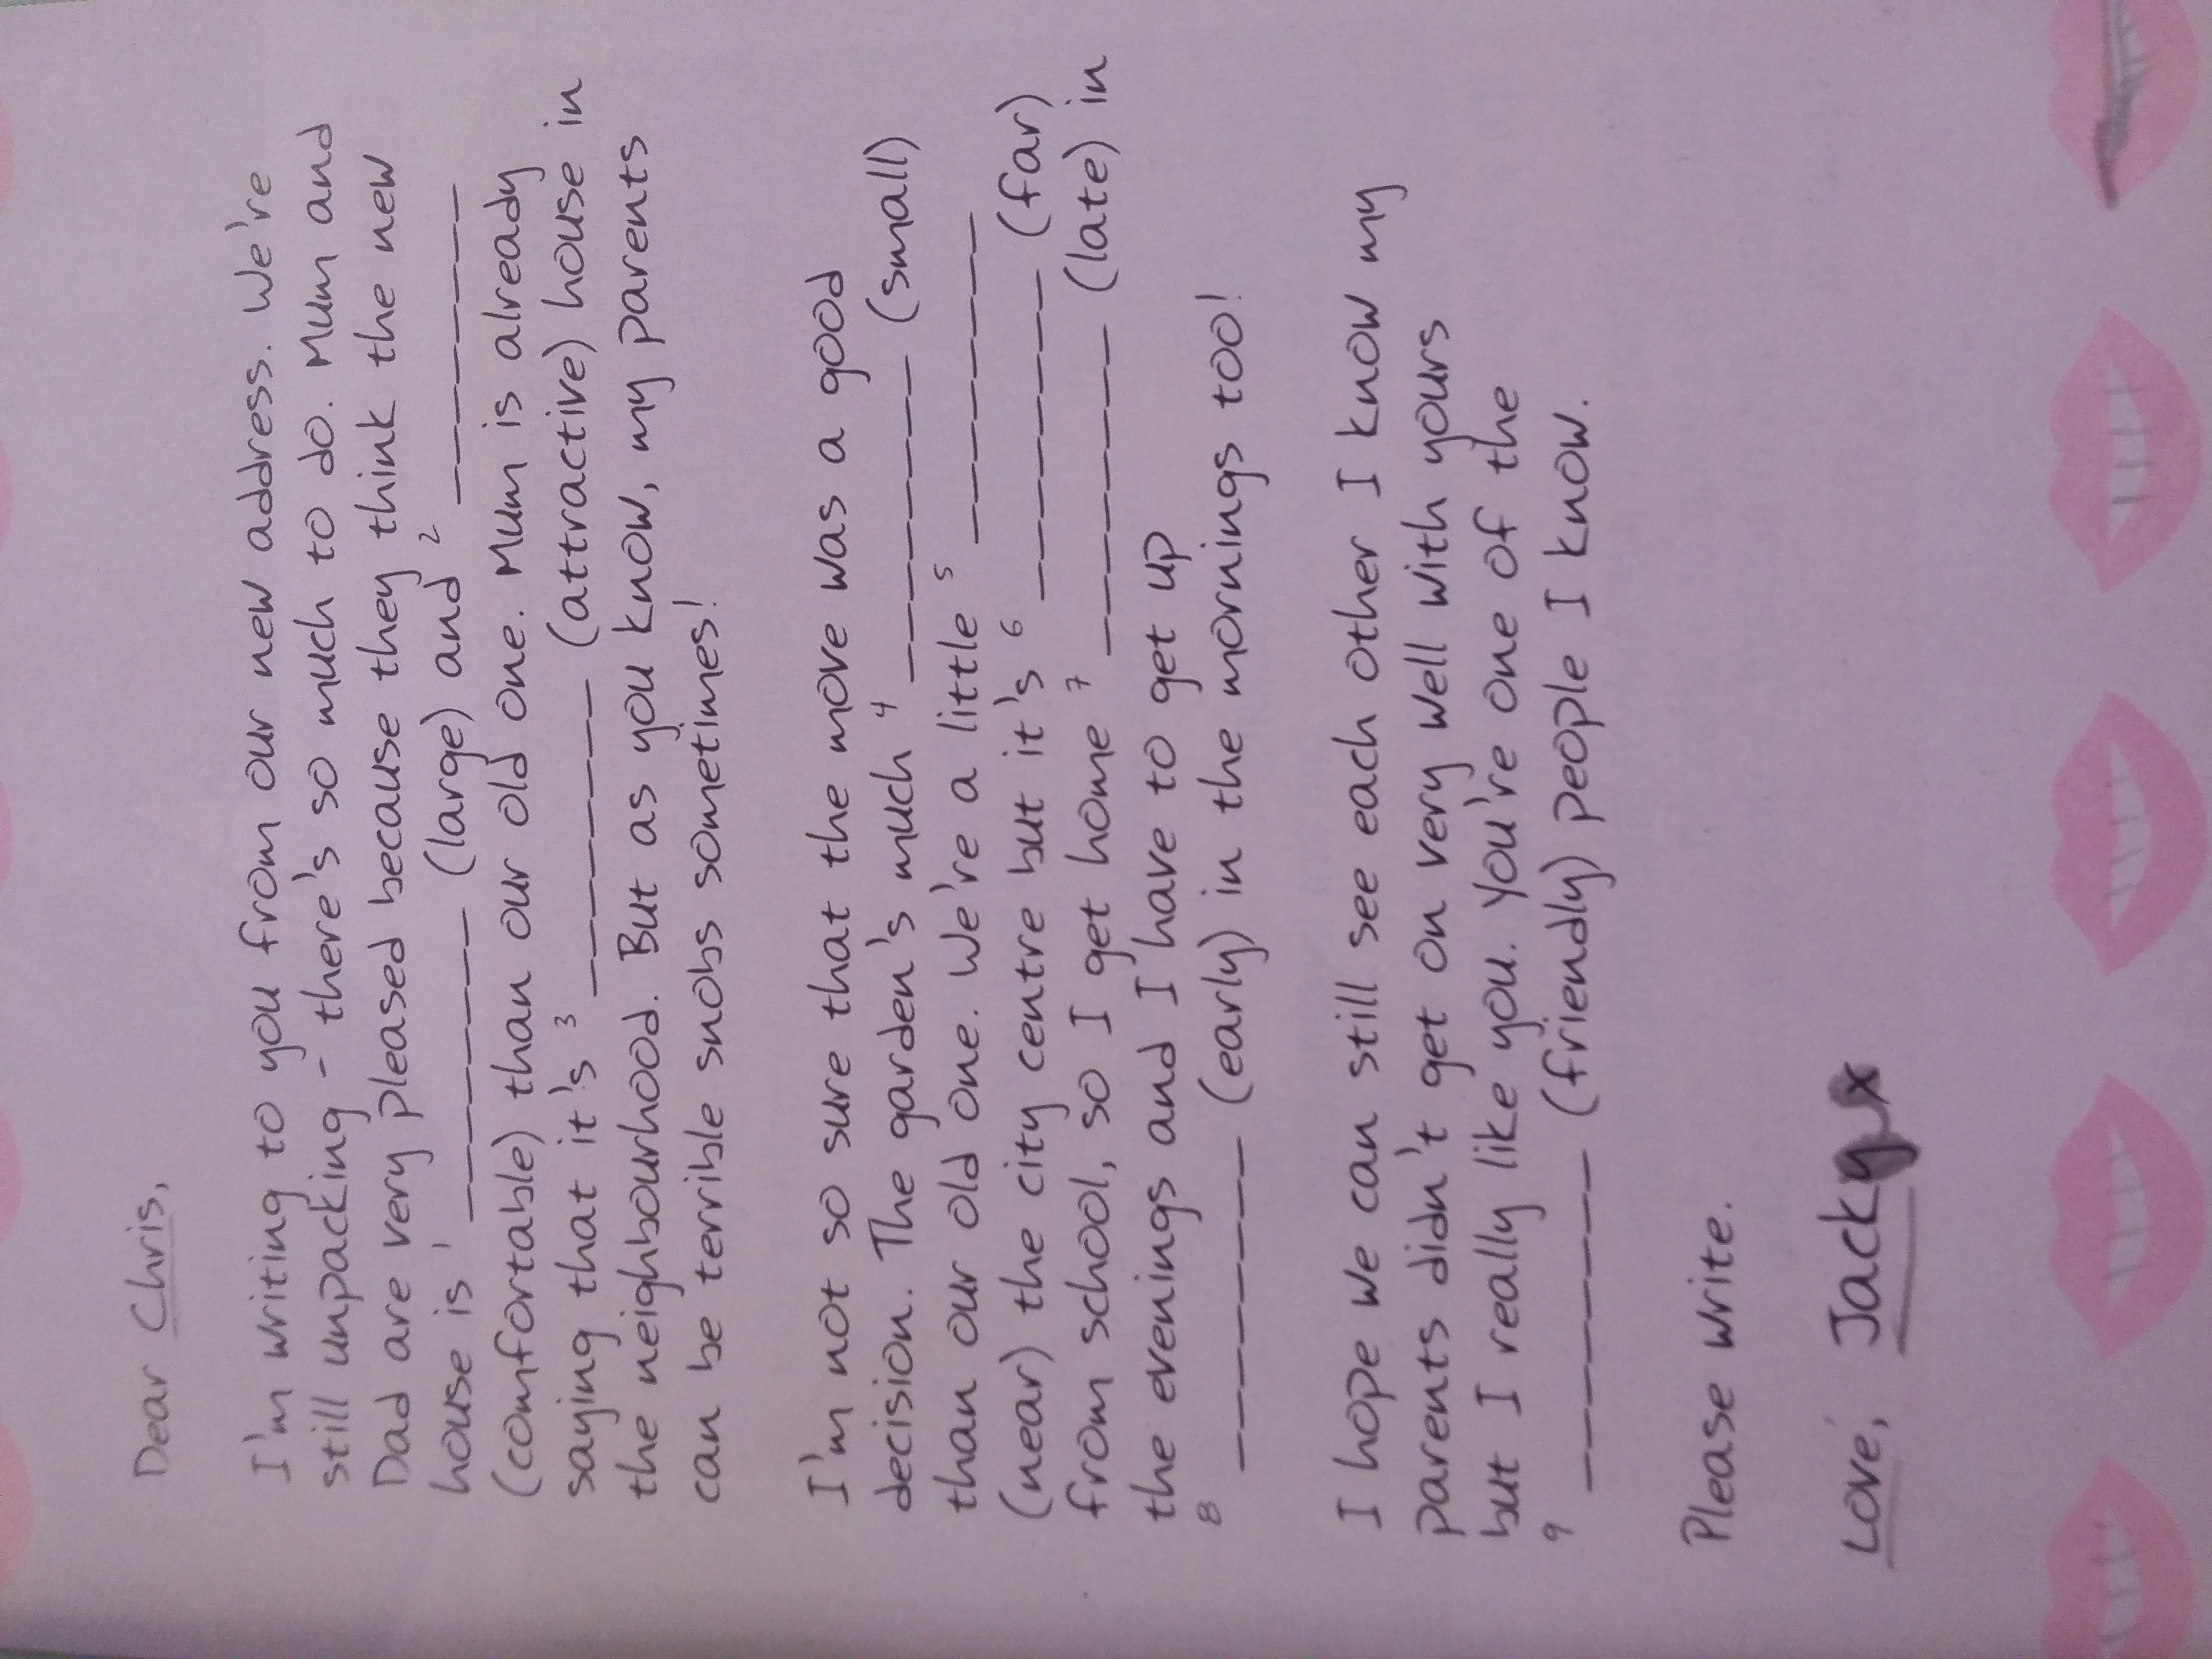 Dear Chris,
I'm writing to you from our new address. We're
still unpacking - there's so much to do. Mum and
Dad are very pleased because they think the new
house is 1 _______ (large) and 2 _______
(comfortable) than our old one. Mum is already
saying that it's 3 _______ (attractive) house in
the neighbourhood. But as you know, my parents
can be terrible snobs sometimes!
I'm not so sure that the move was a good
decision. The garden's much 4 _______ (small)
than our old one. We're a little 5 _______
(near) the city centre but it's 6 _______ (far)
from school, so I get home 7 _______ (late) in
the evenings and I have to get up
8 _______ (early) in the mornings too!
I hope we can still see each other I know my
parents didn't get on very well with yours
but I really like you. You're one of the
9 _______ (friendly) people I know.
Please write.
Love, Jacky x